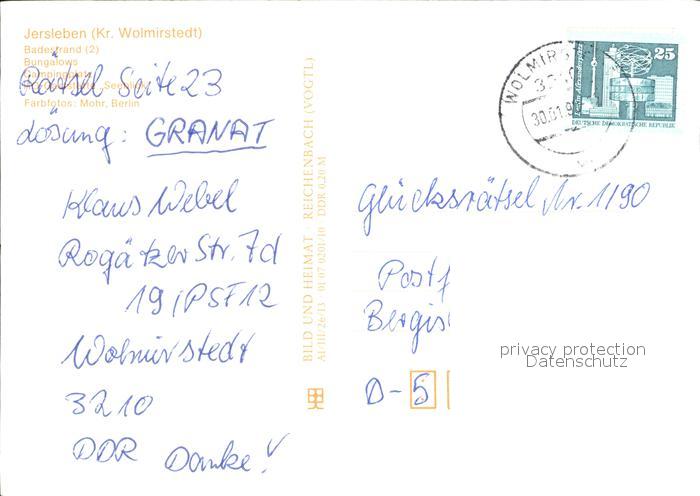 Jersleben (Kr. Wolmirstedt)
Badestrand (2)
Bungalows
Campingplatz
Farbfotos: Mohr, Berlin
Rätsel Seite 23
Lösung: GRANAT
Klaus Webel
Rogätzer Str. 7d
19 / PSF 12
Wolmirstedt
3210
DDR Danke!
BILD UND HEIMAT · REICHENBACH (VOGTL)
A1/III/26/13 01 07 0201/10 DDR 0,20 M
WOLMIRST
30.01.9
25
DEUTSCHE DEMOKRATISCHE REPUBLIK
Glücksrätsel Nr. 1190
Postf
Bergis
D-5
privacy protection
Datenschutz